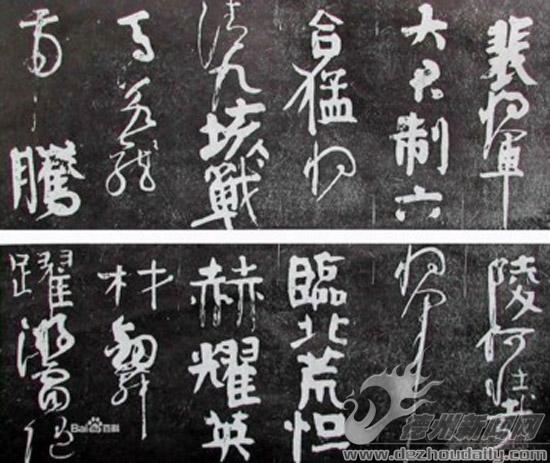 裴將軍
大君制六
合猛將
清九垓戰
馬若龍
虎騰
陵何壯哉
將軍
臨北荒烜
赫耀英
材劍舞
躍游電隨
Bai百科
德州新闻网
www.dezhoudaily.com